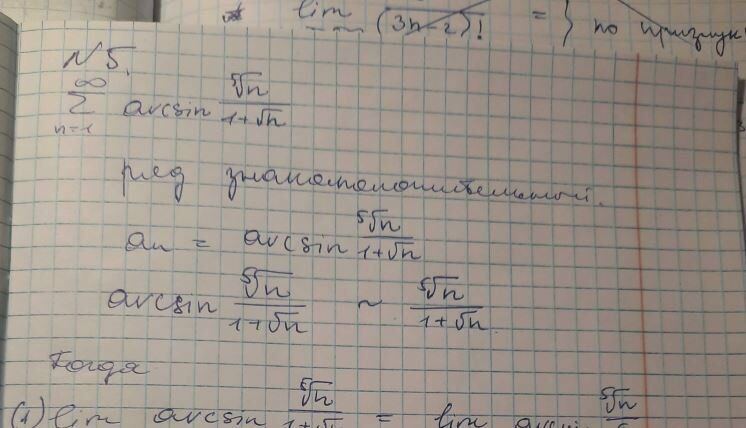 lim / (3n-2)! = } по признак
N 5.
∞ Σ n=1 arcsin ⁵√n / 1+√n
ряд знакоположительный.
an = arcsin ⁵√n / 1+√n
arcsin ⁵√n / 1+√n ~ ⁵√n / 1+√n
Тогда
(1) lim arcsin ⁵√n / 1+√n = lim ⁵√n